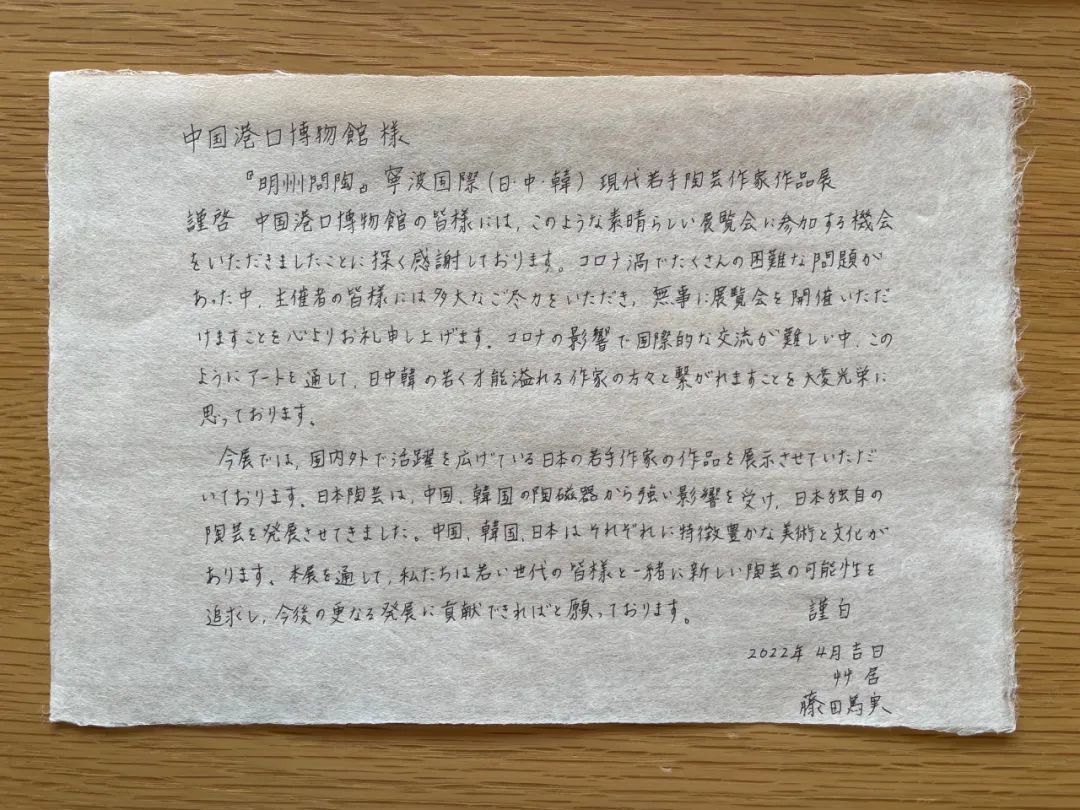 中国港口博物館 様
『明州問陶』寧波国際(日・中・韓) 現代若手陶芸作家作品展
謹啓 中国港口博物館の皆様には、このような素晴らしい展覧会に参加する機会
をいただきましたことに深く感謝しております。コロナ渦でたくさんの困難な問題が
あった中、主催者の皆様には多大なご尽力をいただき、無事に展覧会を開催いただ
けますことを心よりお礼申し上げます。コロナの影響で国際的な交流が難しい中、この
ようにアートを通して、日中韓の若く才能溢れる作家の方々と繋がれますことを大変光栄に
思っております。
今展では、国内外で活躍を広げている日本の若手作家の作品を展示させていただ
いております。日本陶芸は、中国、韓国の陶磁器から強い影響を受け、日本独自の
陶芸を発展させてきました。中国、韓国、日本はそれぞれに特徴豊かな美術と文化が
あります。本展を通して、私たちは若い世代の皆様と一緒に新しい陶芸の可能性を
追求し、今後の更なる発展に貢献できればと願っております。 謹白
2022年 4月吉日
艸居
藤田篤実